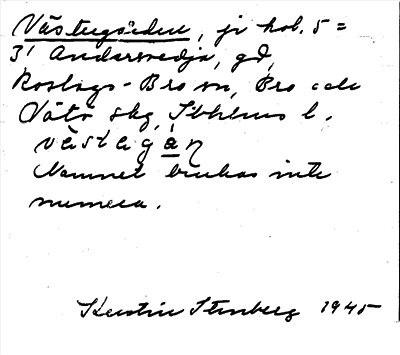 Västergården, jr hob. 5 =
3¹ Andersvedja, gd,
Roslags-Bro sn, Bro och
Vätö skg, Sthlms l.
västəgạ̄ṇ
Namnet brukas inte
numera.
Kerstin Stenberg 1945